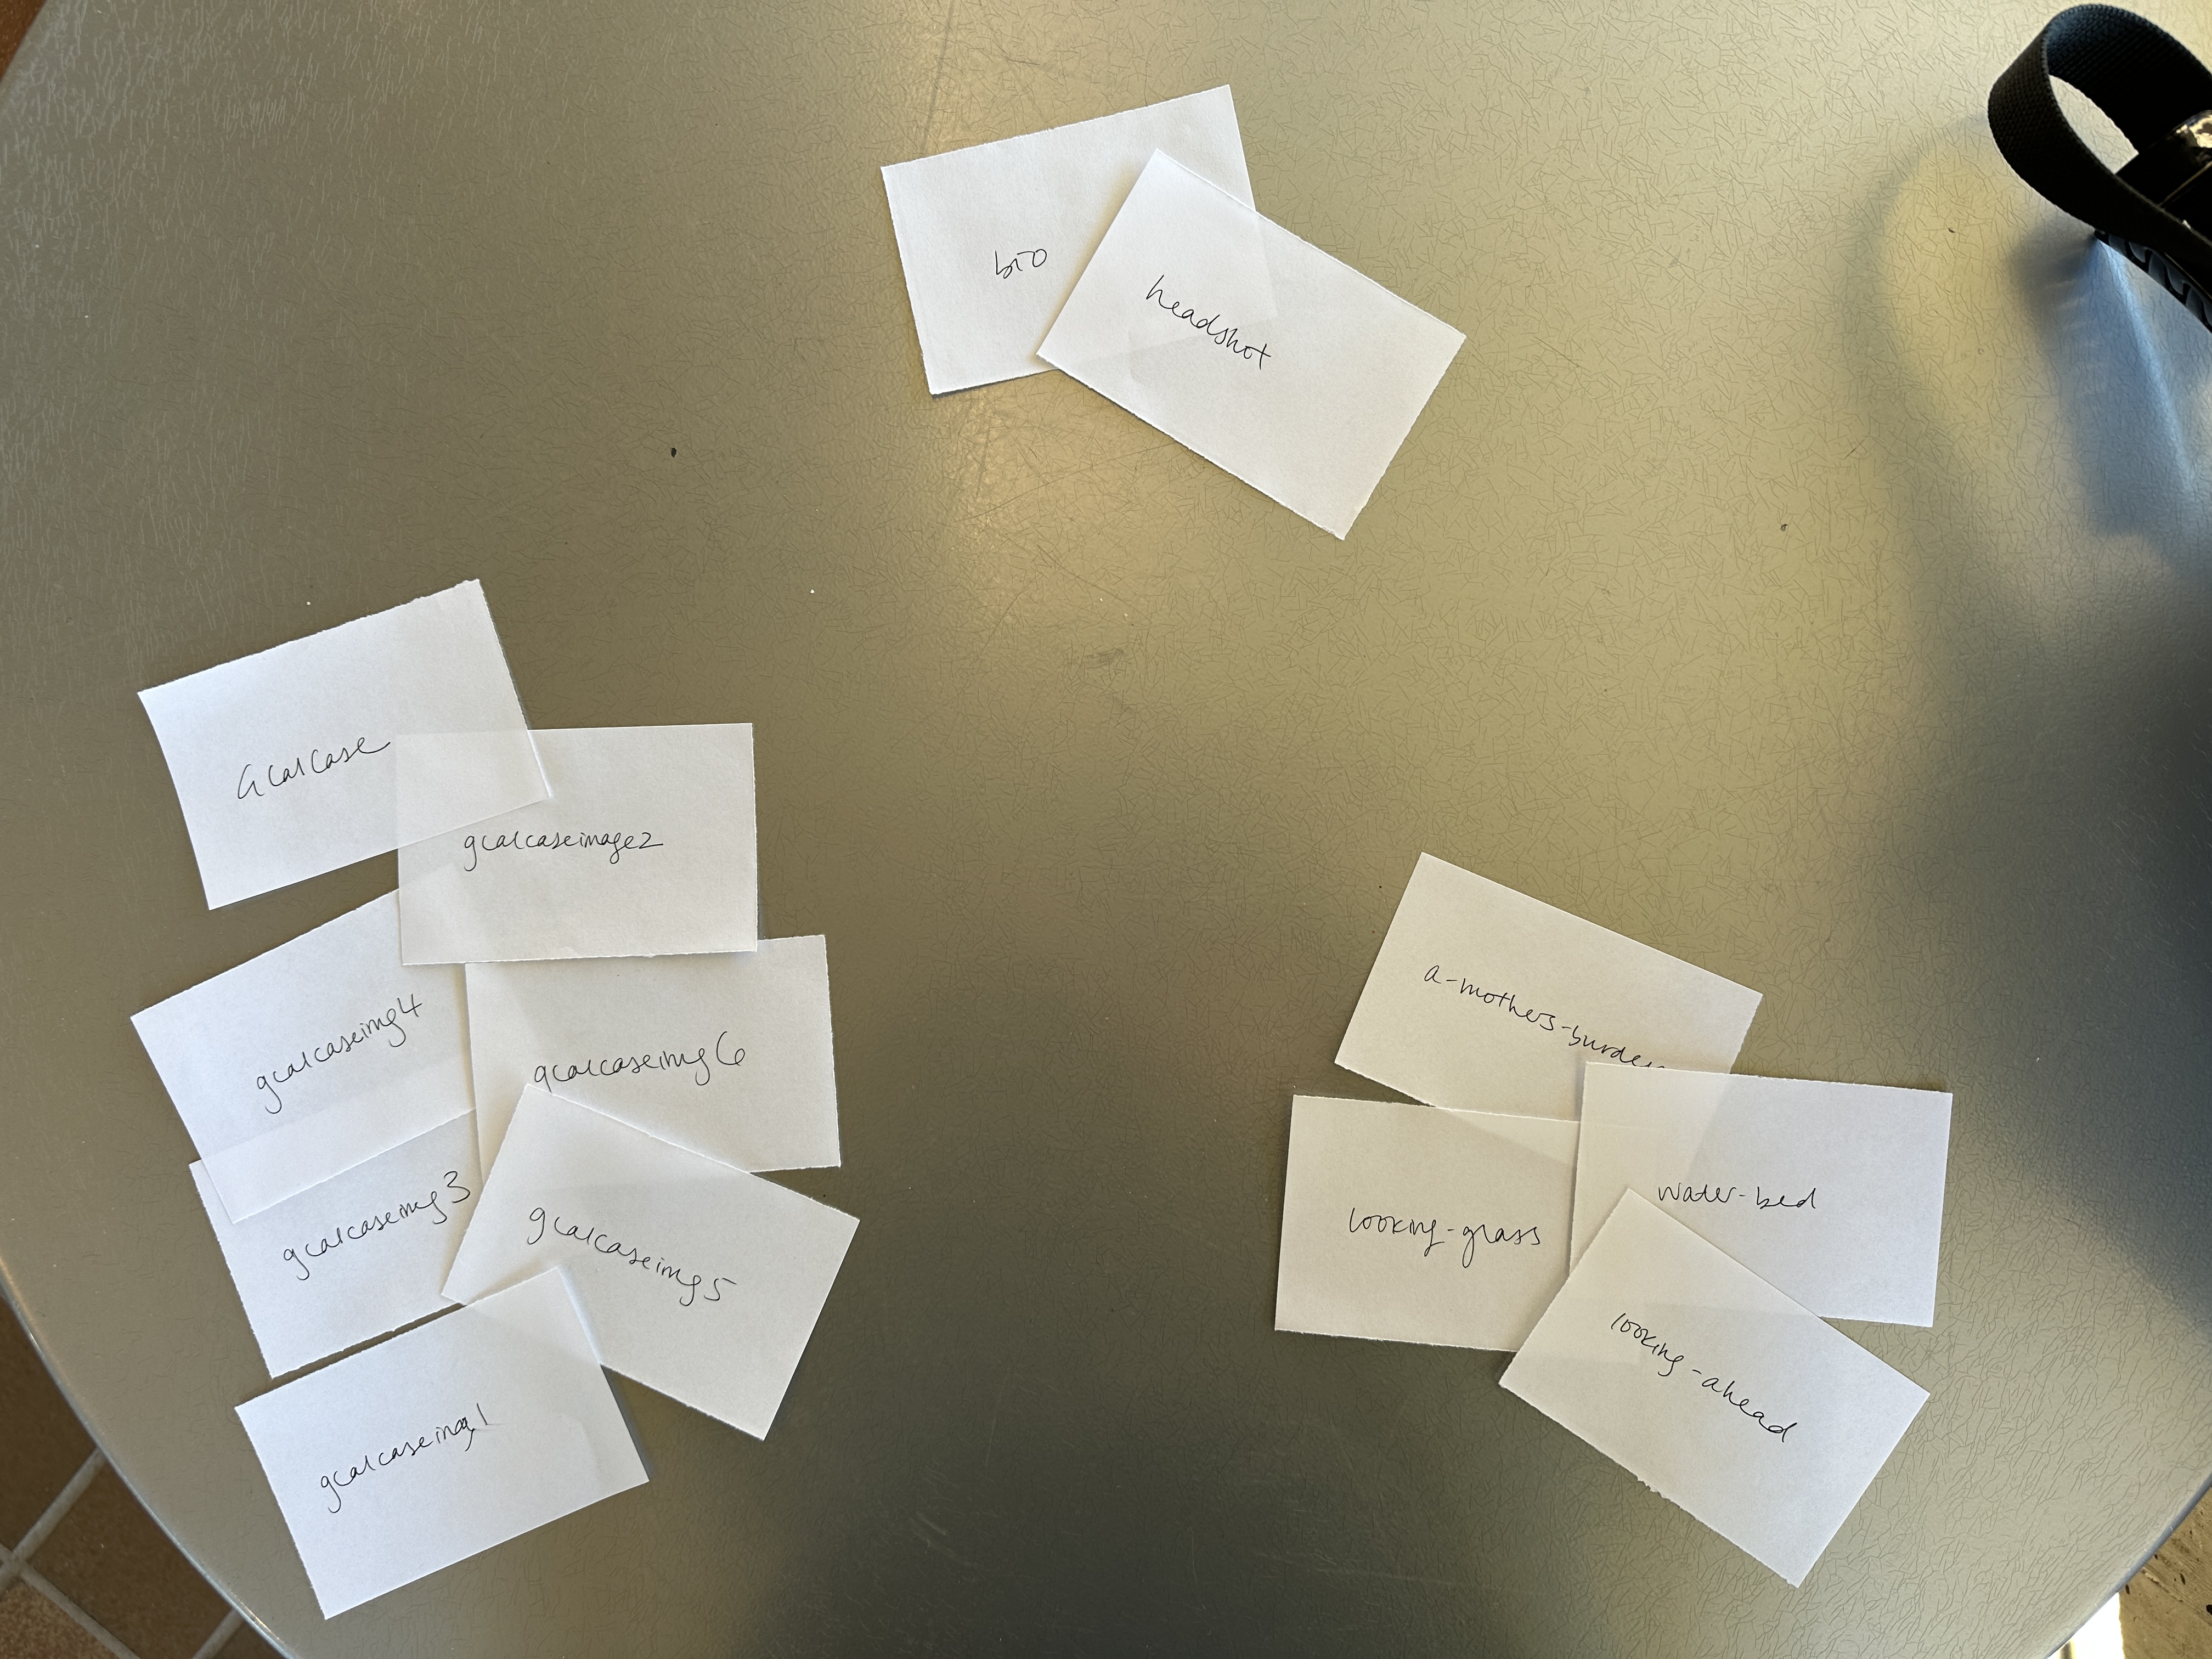 bio
headshot
GCalCase
gcalcaseimage2
gcalcaseimg4
gcalcaseimg6
gcalcaseimg3
gcalcaseimg5
gcalcaseimg1
a-mothers-burden
water-bed
looking-grass
looking-ahead